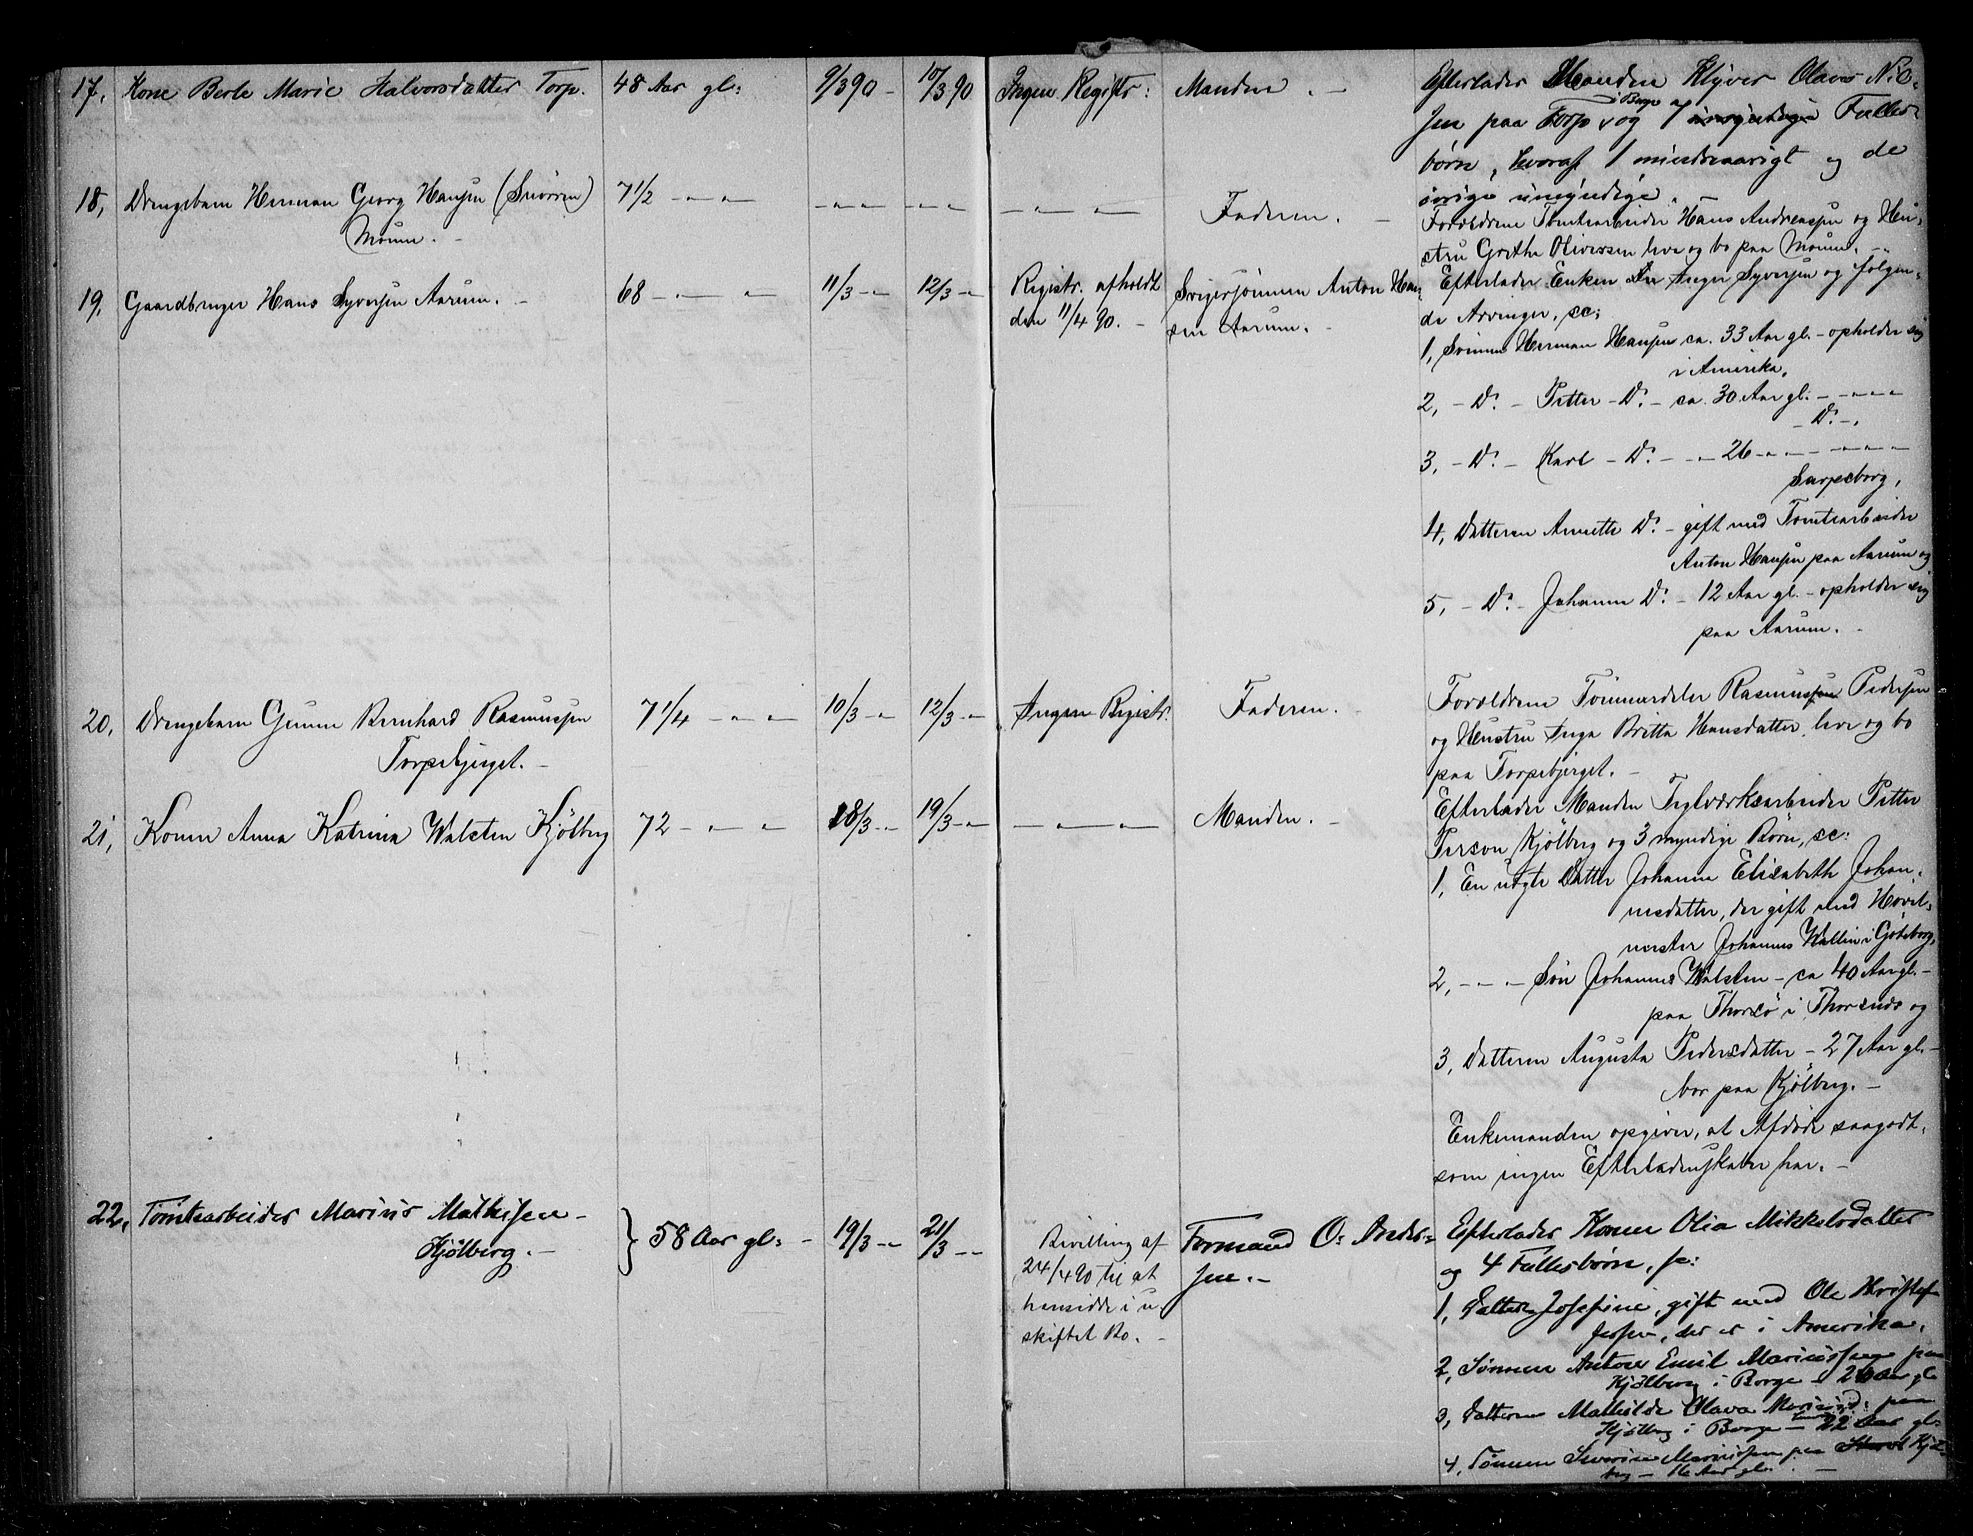 17, Kone Berte Marie Halvorsdatter Torp. 48 Aar gl: 9/3 90 - 10/3 90 Ingen Registr: Manden. - Efterlader Manden Klyver Olaves N: O-
sen paa Torp i Borge og 7 umyndige Fælles-
børn, hvoraf 1 mindreaarigt og de
øvrige umyndige. -
18, Drengebarn Herman Georg Hansen
Moum. - 7 1/2 - " - " - " - " - " - " Faderen. - Forældrene Tomtearbeider Hans Andreassen og Hu-
stru Grethe Oliversen leve og bo paa Moum. -
19, Gaardbruger Hans Syversen Aarum. - 68 - " - " 11/3 - " 12/3 - " Registr. afholdt
den 11/4 90. - Svigersønnen Anton Han-
sen Aarum. - Efterlader Enken Inger Syversen og følgen-
de Arvinger, sc:
1, Sønnen Herman Hansen ca. 33 Aar gl. - opholder sig
i Amerika,
2, - Do. - Petter - Do. - ca. 30 Aar gl. - " - " -
- Do. -,
3, - Do. - Karl - Do. - " - 26 - " - " - " - " -
Sarpsborg,
4, Datteren Annette Do. - gift med Tomtearbeider
Anton Hansen paa Aarum og
5, - Do. - Johanne Do. - 12 Aar gl. - opholder sig
paa Aarum. -
20, Drengebarn Gunnar Bernhard Rasmussen
Torpebjerget. - 7 1/4 - " - " 10/3 - " 12/3 - " Ingen Registr. Faderen. - Forældrene Tømmerdeler Rasmus Pedersen
og Hustru Inga Britta Hansdatter, leve og bo
paa Torpebjerget. -
21, Konen Anna Katrina Walsten Kjølberg 72 - " - " 18/3 - " 19/3 - " - " - " Manden. - Efterlader Manden Teglværksarbeider Petter
Person Kjølberg og 3 myndige Børn, sc:
1, En uægte Datter Johanna Elisabeth Johan-
nesdatter, der gift med
Johannes Wallin i Gøteborg,
2, - " - Søn Johannes Walsten - ca 40 Aar gl. -
paa Thorsø i Thorsnes og
3, Datteren Augusta Pedersdatter - 27 Aar gl. -
bor paa Kjølberg. -
Enkemanden opgiver, at Afdøde saagodt-
som ingen Efterladenskaber har. -
22, Tomtearbeider Marius Mathisen -
Kjølberg. - } 58 Aar gl: - 19/3 - " 21/3 - " Bevilling af
24/4 90 til at
hensidde i u-
skiftet Bo. - Formand O: Ander-
sen. - Efterlader Konen Olia Mikkelsdatter
og 4 Fællesbørn, sc:
1, Datter Josefine, gift med Ole Kristof-
fersen, der er i Amerika,
2, Sønnen Anton Emil Mariussen paa
Kjølberg i Borge - 26 Aar gl.
3, Datteren Mathilde Olava Mariusd: paa
Kjølberg i Borge - 22 Aar gl:
4, Sønnen Severin Mariussen paa Kjøl-
berg - 16 Aar gl. -